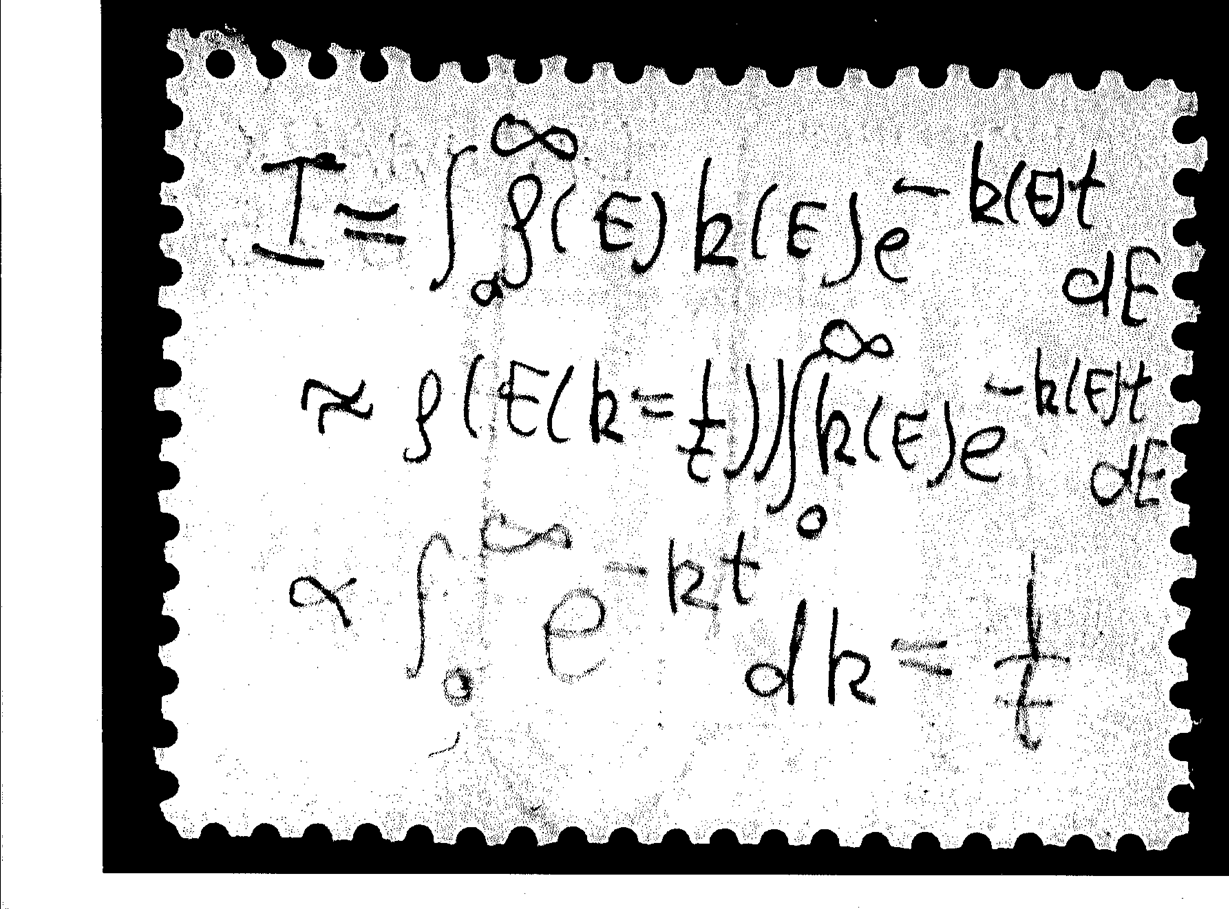 I = ∫₀^∞ ρ(E) k(E) e^{-k(E)t} dE
≈ ρ(E(k=1/t)) ∫₀^∞ k(E) e^{-k(E)t} dE
∝ ∫₀^∞ e^{-kt} dk = 1/t